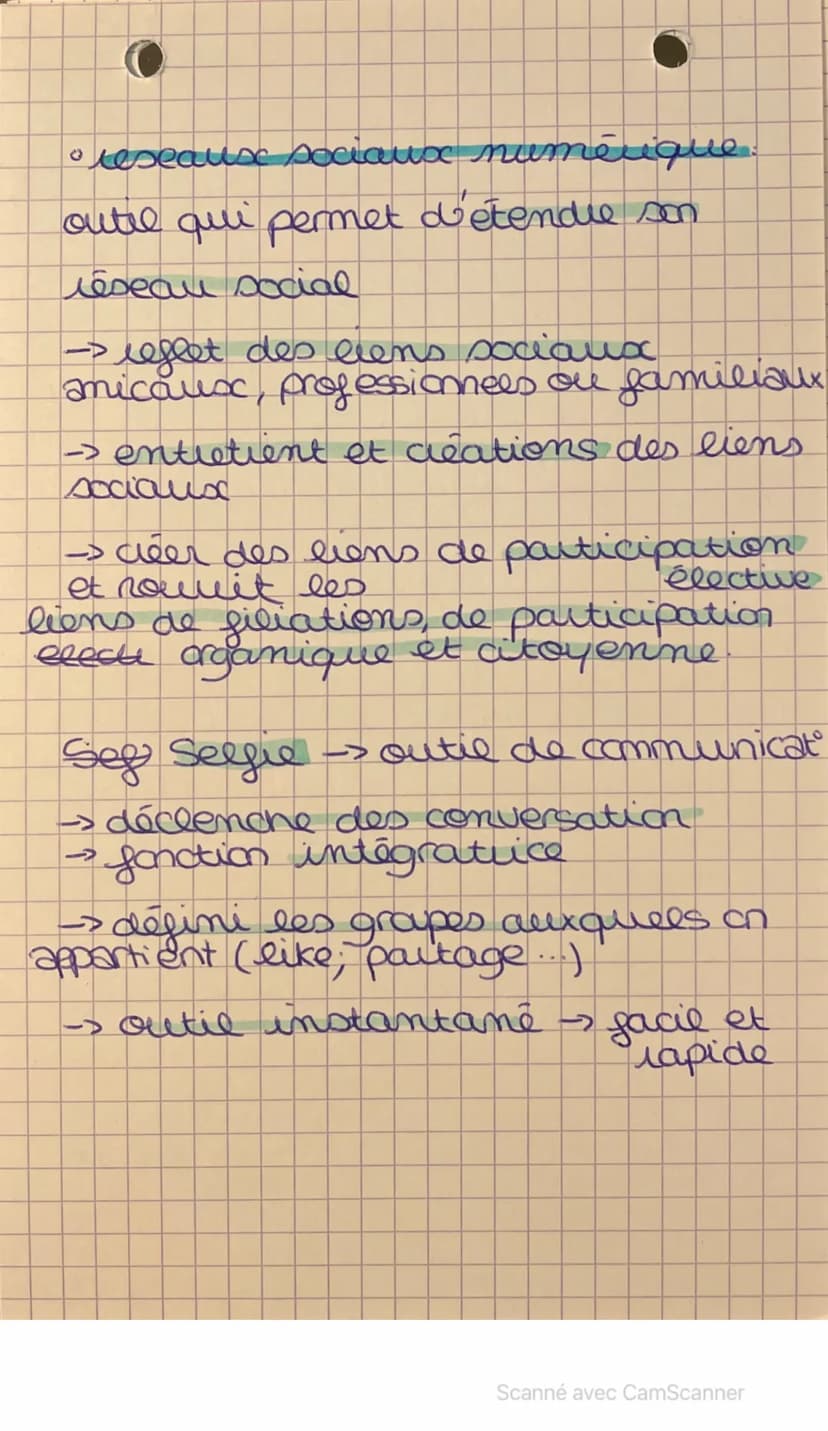 ° reseaux sociaux numérique :
outil qui permet d'étendre son
réseau social
→ reflet des liens sociaux
amicaux, professionnels ou familiaux
→ entretient et créations des liens
sociaux
→ créer des liens de participation
et nourrit les élective
liens de filiations, de participation
elect organique et citoyenne.
Sef Selfie → outil de communicat°
→ déclenche des conversation
→ fonction intégratrice
→ défini les groupes auxquels on
appartient (like, partage ...)
→ outil instantané → facil et
rapide
Scanné avec CamScanner